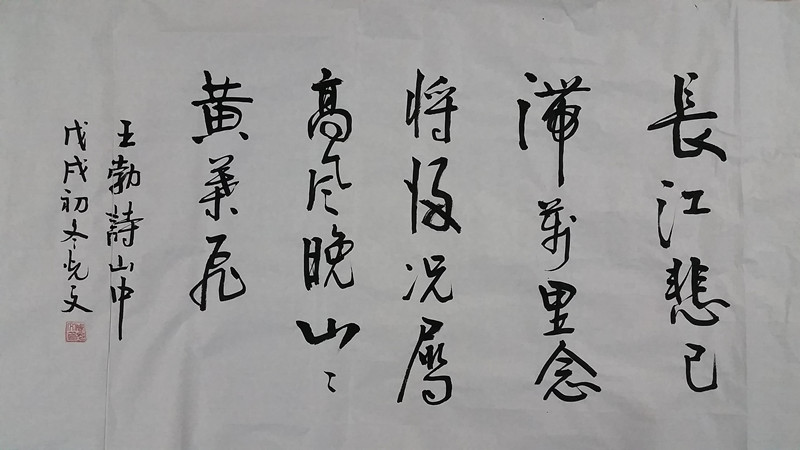 長江悲已
滯萬里念
將歸况屬
高風晚山々
黃葉飛
王勃詩山中
戊戌初冬悦文